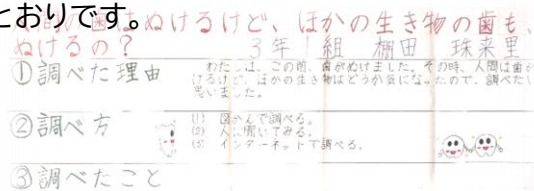 とおりです。
の歯はぬけるけど、ほかの生き物の歯も、
ぬけるの？
3年1組 棚田 珠菜里
①調べた理由
わたしは、この前、歯がぬけました。その時、人間は歯が
けるけど、ほかの生き物はどうか気になったので、調べたい
思いました。
②調べ方
(1) 図かんで調べる。
(2) 人に聞いてみる。
(3) インターネットで調べる。
③調べたこと